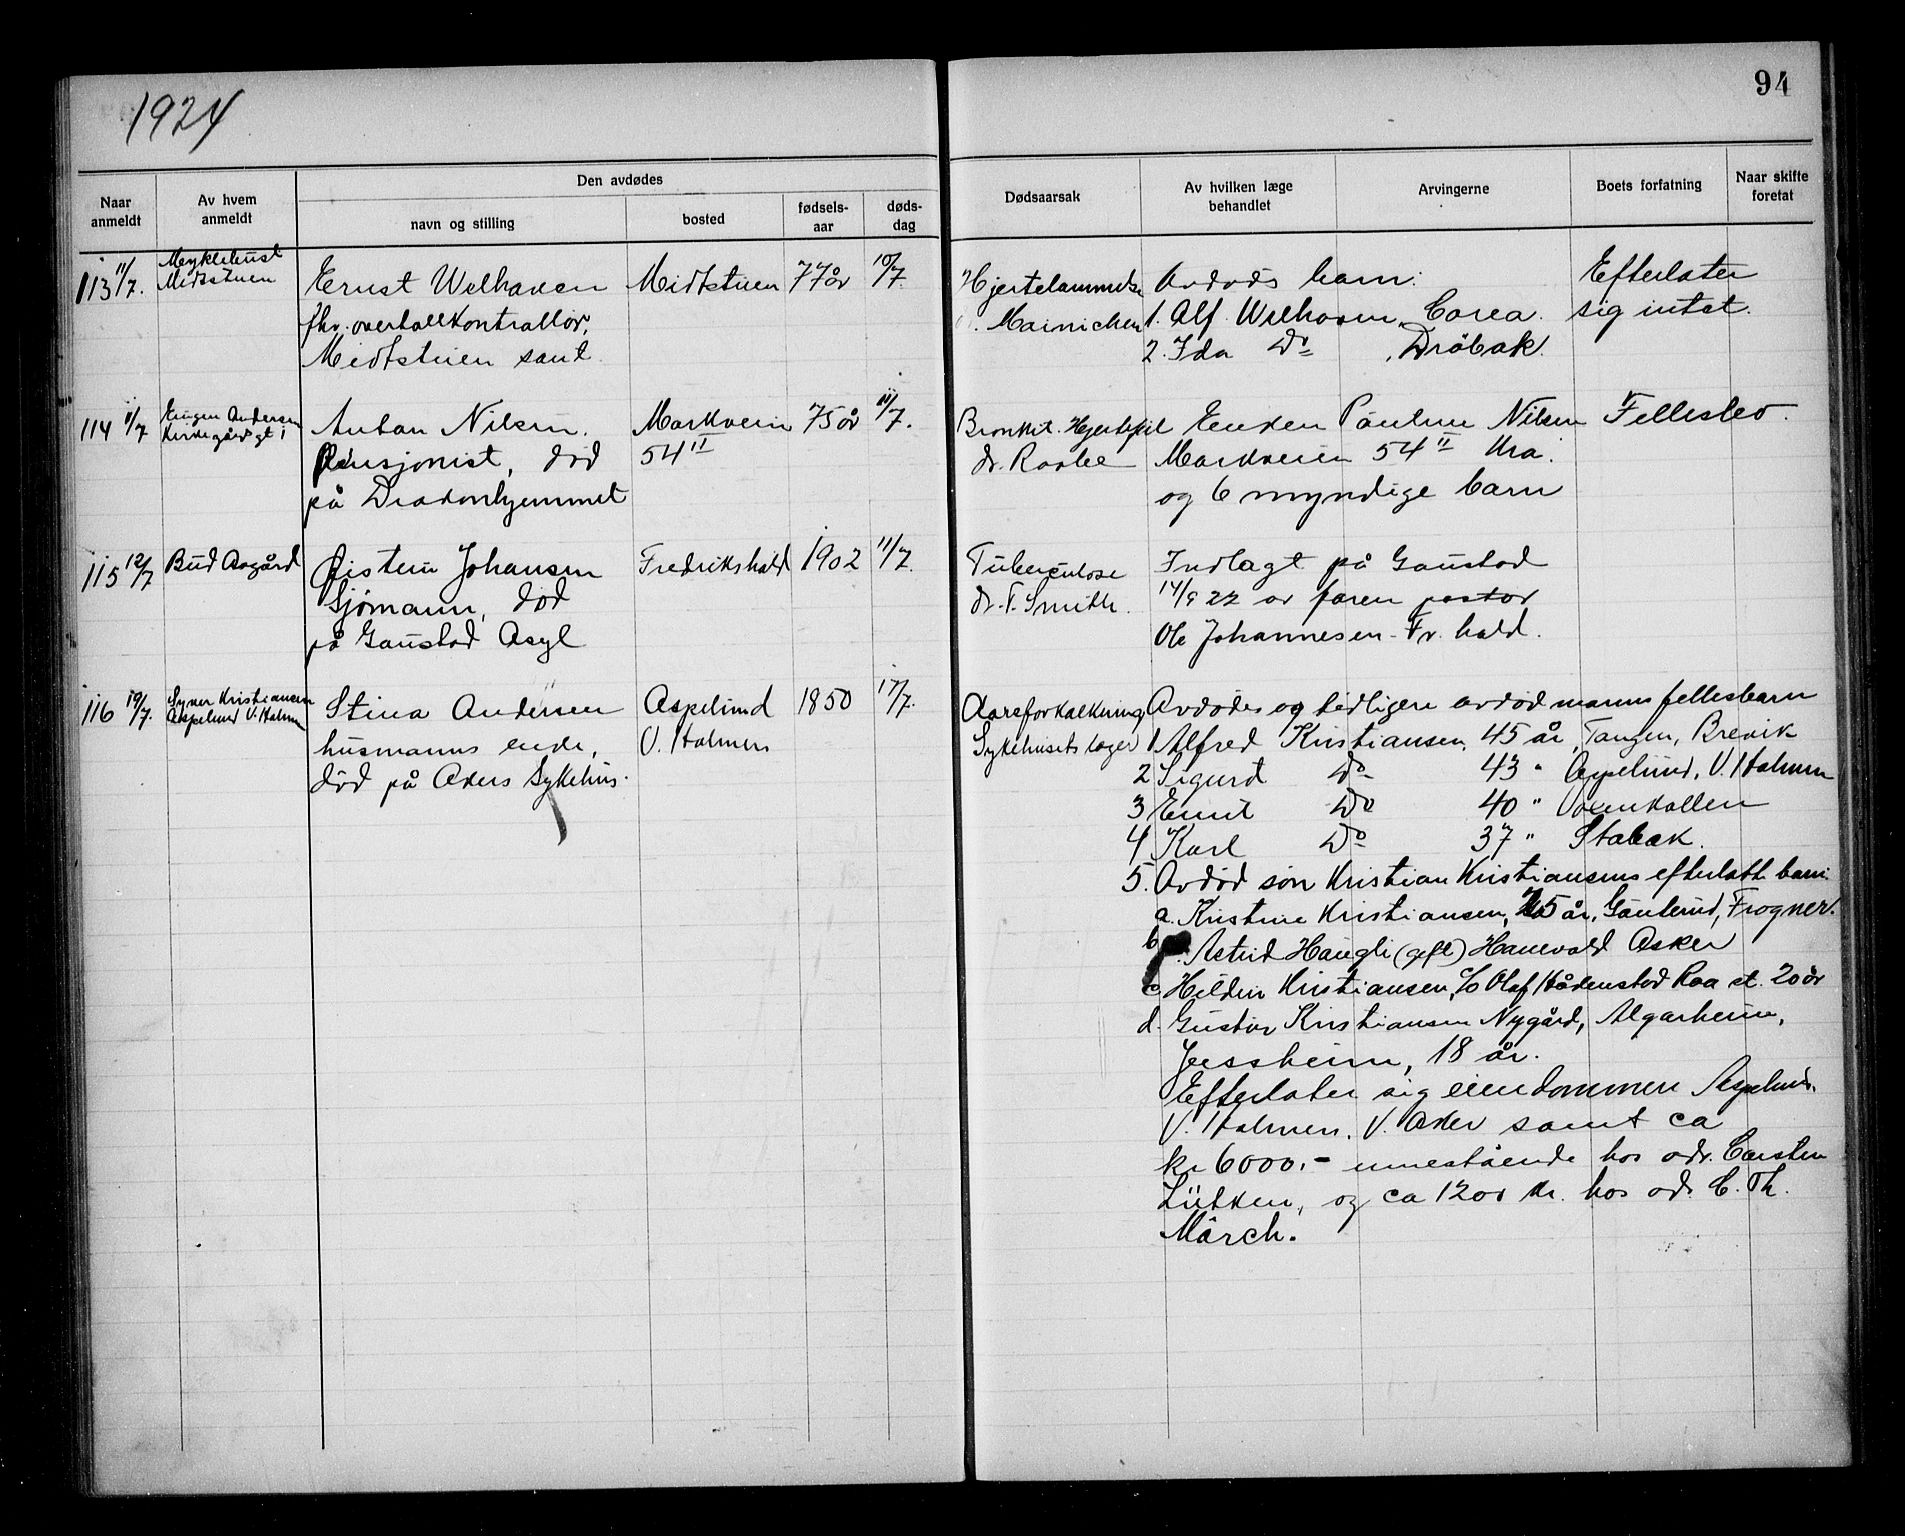 1924
94
Naar anmeldt
Av hvem anmeldt
Den avdødes
navn og stilling
bosted
fødsels-aar
døds-dag
Dødsaarsak
Av hvilken læge behandlet
Arvingerne
Boets forfatning
Naar skifte foretat
113 11/7.
Myklebust
Midtstuen
Ernst Welhaven
fhv. overtollkontrollør,
Midtstuen sant
Midtstuen
77 år
10/7.
Hjertelammelse
Mainichen
Avdøds barn:
1. Alf Welhaven, Corea.
2. Ida Do , Drøbak.
Efterlater
sig intet.
114 11/7
Andersen
Kirkegårdsgt 1
Anton Nilsen.
Pensjonist, død
på Diakonhjemmet
Markvein
54 II
75 år
11/7.
Bronkit. Hjertefeil
dr. Raabe
Enken Pauline Nilsen
Markveien 54 II Kra.
og 6 myndige barn
Fellesbo.
115 12/7
Bud Aagård
Øistein Johansen
Sjømann, død
på Gaustad Asyl
Fredrikshald
1902
11/7.
Tuberculose
dr. T. Smith.
Indlagt på Gaustad
14/9 22 av faren pastor
Ole Johannesen - Fr. hald.
116 19/7.
Kristiansen
Aspelund V. Holmen
Stina Andersen
husmanns enke,
død på Akers Sykehus.
Aspelund
V. Holmen
1850
17/7.
Aareforkalkning
Sykehusets læger
Avdødes og tidligere avdød manns fellesbarn
1 Alfred Kristiansen, 45 år, Tangen, Brevik
2 Sigurd Do 43 " Aspelund, V. Holmen
3 Emil Do 40 " Voxenkollen
4 Karl Do 37 " Stabæk.
5. Avdød søn Kristian Kristiansens efterlatte barn:
a. Kristine Kristiansen, 25 år, Frogner.
b. Astrid Haugli (gift) Hanevold Asker
c. Kristiansen, c/o Olaf Roa st. 20 år
d. Gustav Kristiansen Nygård, Algarheim,
Jessheim, 18 år.
Efterlater sig eiendommen Aspelund.
V. Holmen. V. Aker samt ca
kr 6000.- innestående hos adv. Carsten
Lütken, og ca 1200 kr. hos adv. C. Th.
Mørch.